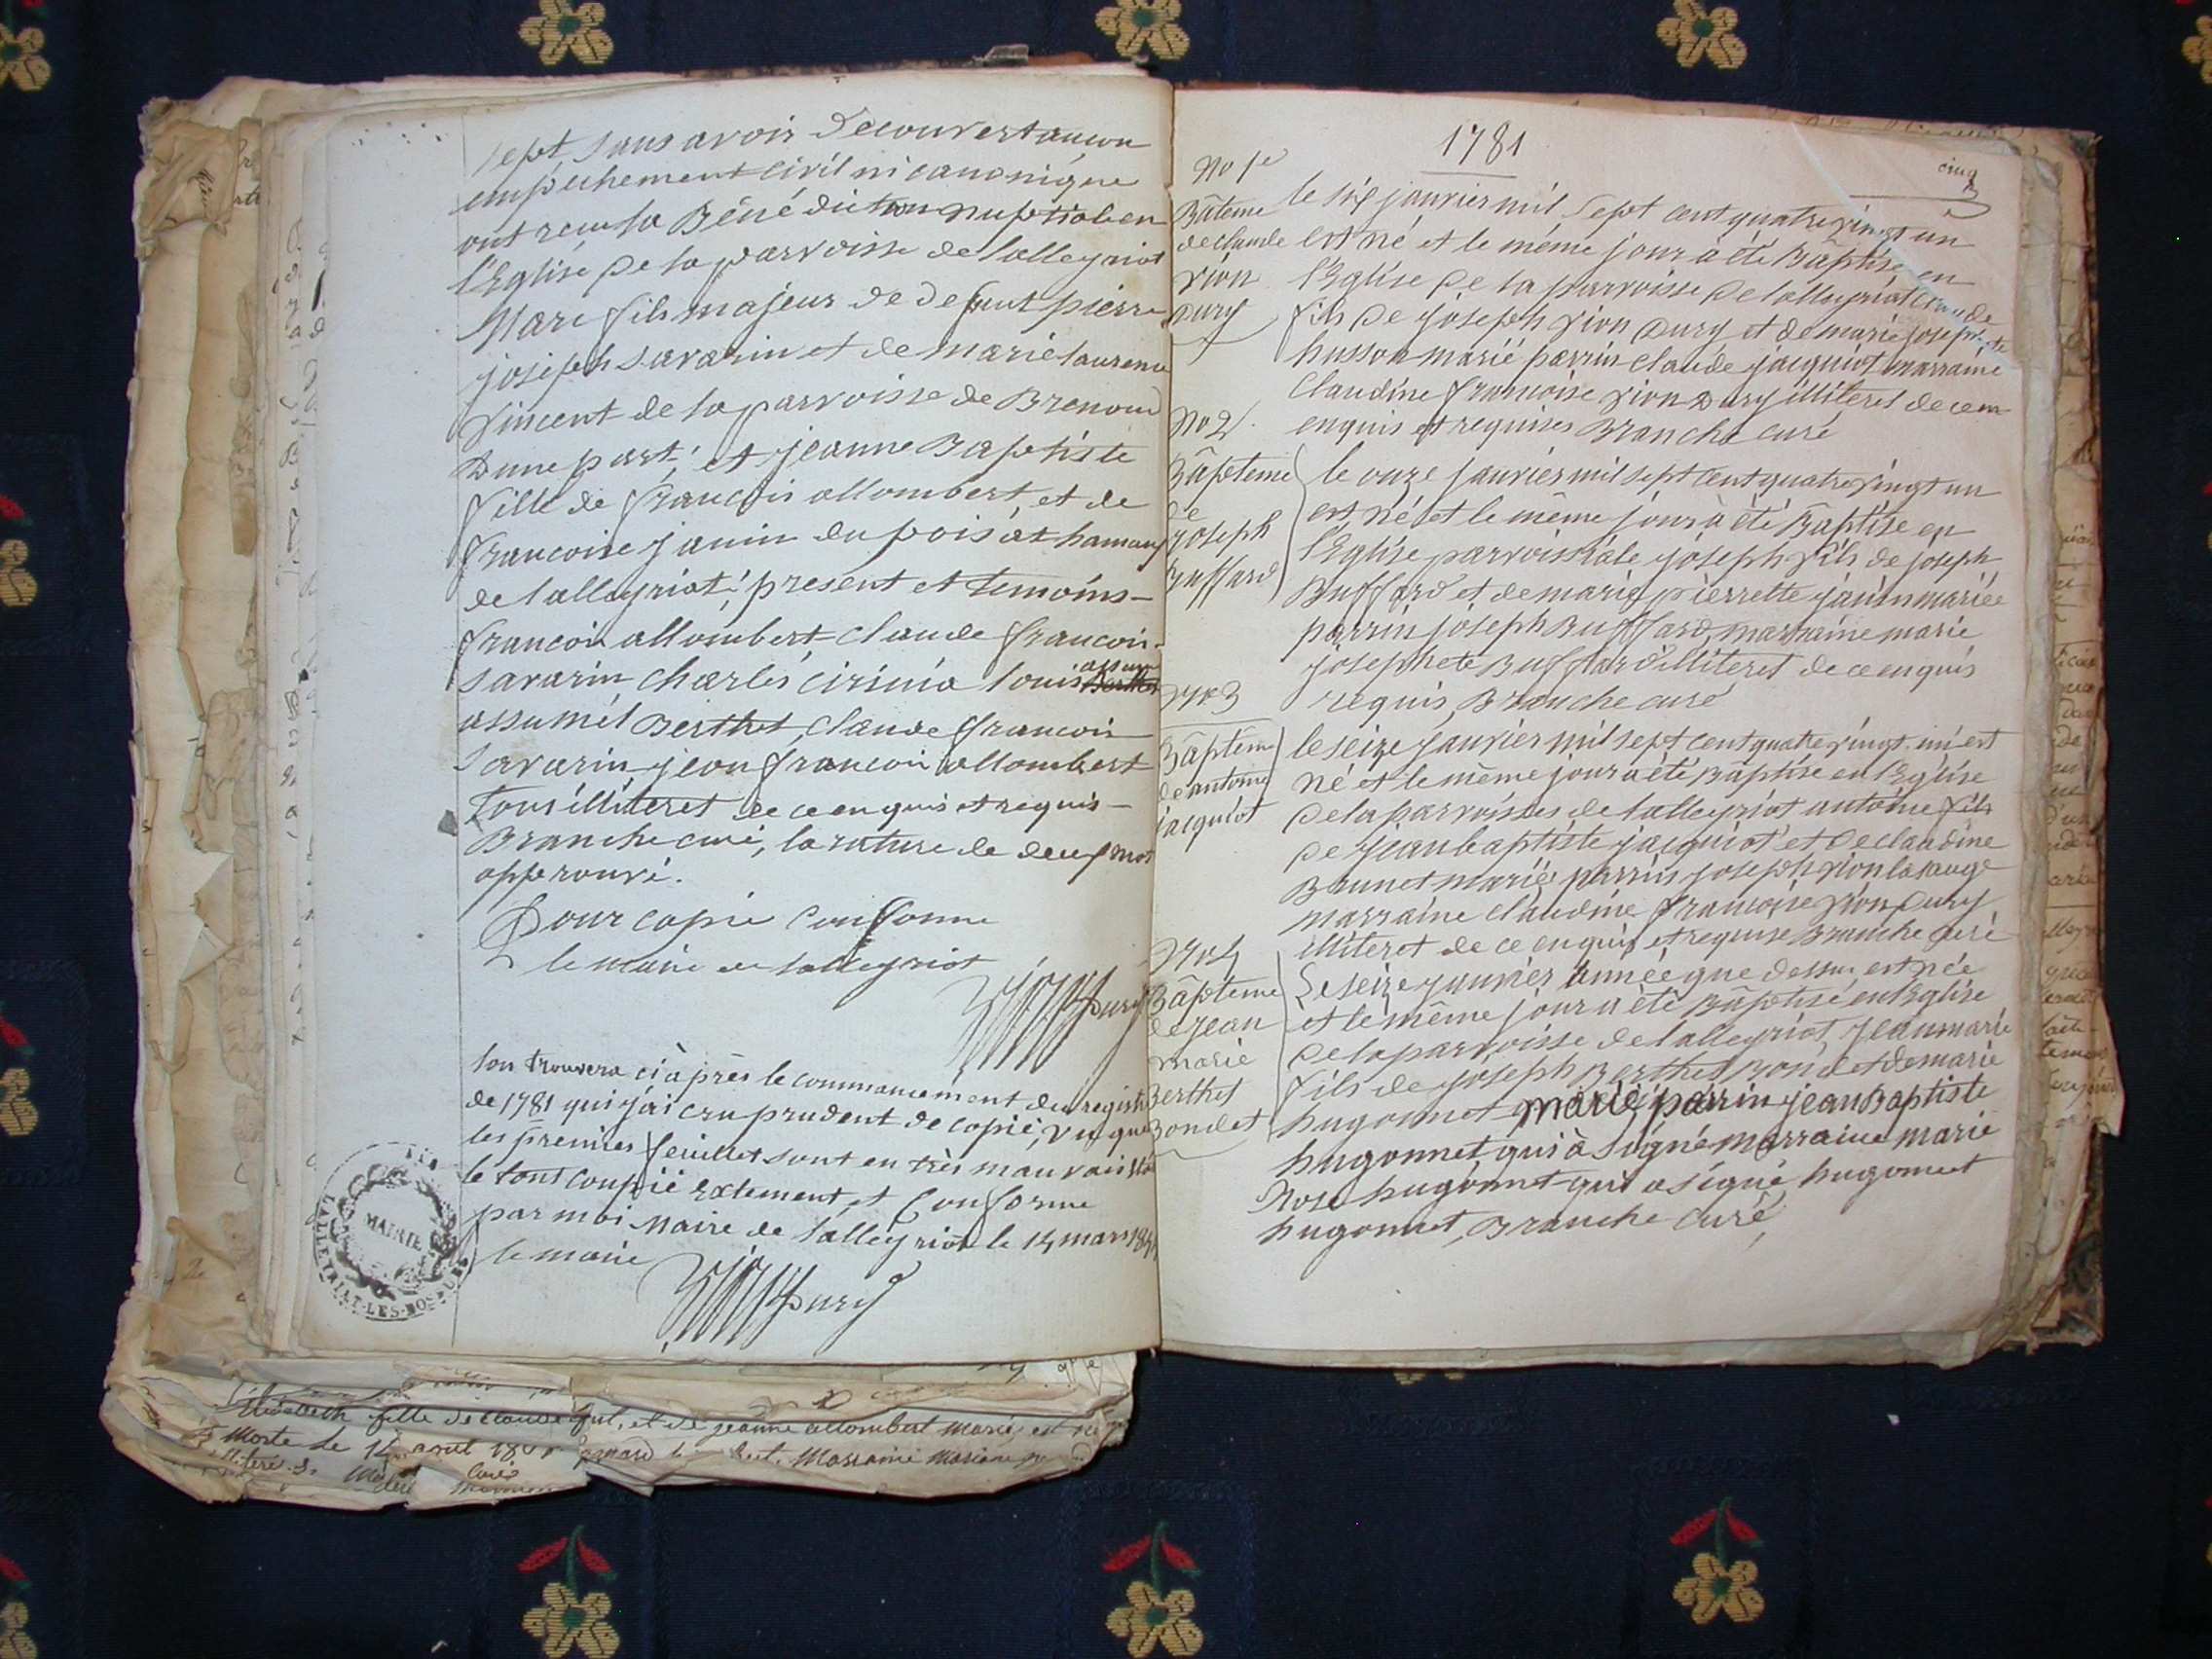 sept, sans avoir decouvert aucun
empechement civil ni canonique
ont recu la Bénédiction nuptiale en
l'Eglise de la parroisse de lalleyriat
Marc fils majeur de defunt pierre
joseph savarin et de marie laurence
Vincent de la parroisse de Brenond
Dune part; et jeanne Baptiste
fille de francois allombert, et de
francoise janin du poisat hamaux
de lalleyriat; present et temoins
francois allombert, claude francois
savarin, charles louis
assumel Berthet, claude francois
savarin, jean francois allombert
Tous illiteret de ce enquis et requis
Branche curé, la rature de deux mots
approuvé.
Pour copie Conforme
le maire de lalleyriat
Dury
lon trouvera ci après le commancement du registre
de 1781 qui j'ai cru prudent de copié, vu que
les premiers feuillet sont en très mauvais
le tout coupié extement, et Conforme
par moi Maire de lalleyriat le 14 mars
le maire
Dury
MAIRIE
LALLEYRIAT-LES-
1781
cinq
No 1e
Bâteme
de claude
vion
Dury
le six janvier mil sept cent quatre vingt un
est né et le même jour à été Baptise en
l'Eglise de la parroisse de lalleyriat claude
fils de joseph vion Dury et de marie josephete
husson marié parrin claude jacquiot marraine
Claudine francoise vion Dury illiteret de ce
enquis et requises Branche curé
No 2
Bâpteme
de
joseph
Buffard
le onze janvier mil sept cent quatre vingt un
est né et le même jour à été Baptise en
l'Eglise parroissiale joseph fils de joseph
Buffard et de marie pierrette janin mariée
parrin joseph Buffard, marraine marie
josephete Buffard illiteret de ce enquis
requis, Branche curé
No 3
Bâptem
de antoine
jacquiot
le seize janvier mil sept cent quatre vingt un est
né et le même jour a été Bâptise en l'Eglise
de la parroisses de lalleyriat antoine fils
de jean baptiste jacquiot et de claudine
Baunet marié, parrin joseph vion
marraine claudine francoise vion Dury
illiteret de ce enquis et requise Branche curé
No 4
Bâpteme
de jean
marie
Berthet
Bondet
Le seize janvier année que dessus est née
et le même jour a été Bâptisé en l'Eglise
de la parroisse de lalleyriat, jean marie
fils de joseph Berthet Bondet de marie
hugonnet marié, parrin jean Baptiste
hugonnet qui à signé marraine marie
Rose hugonnet qui a signé, hugonnet
hugonnet, Branche curé,
Elisabeth fille de claude et de jeanne allombert mariés est née
Morte le 14 avril Marraine
curé